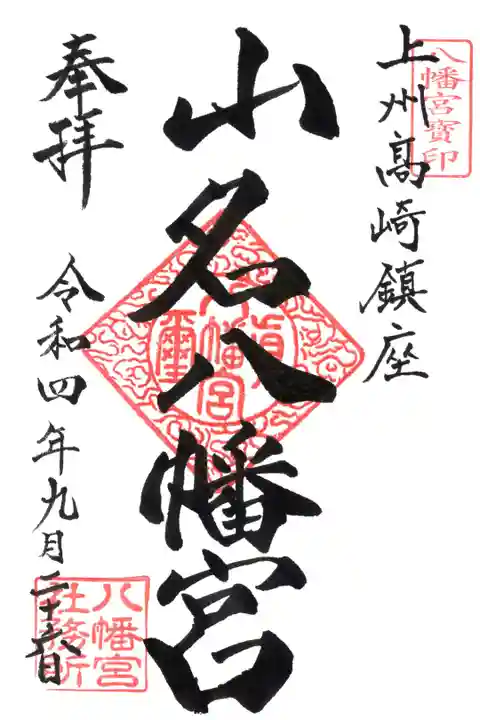 上州高崎鎮座
八幡宮寶印
山名八幡宮
八幡宮
奉拝
令和四年九月二十六日
八幡宮
社務所